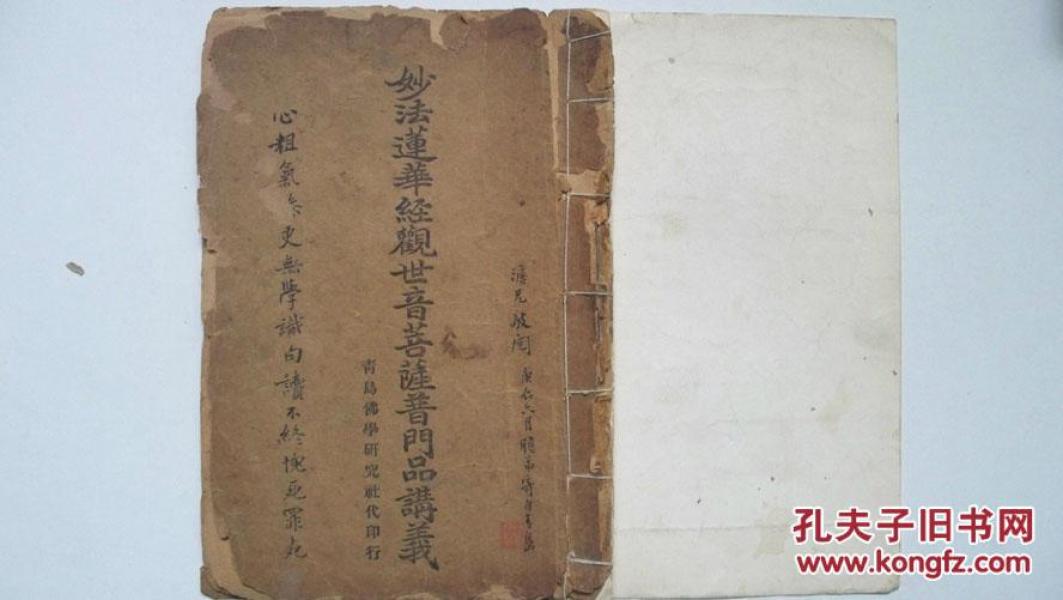 澹兄披閱 庚 六月 弟寄自青島
妙法蓮華経觀世音菩薩普門品講義
青島佛學研究社代印行
心粗氣 更無學識句讀不終愧並罪丸
孔夫子旧书网
www.kongfz.com